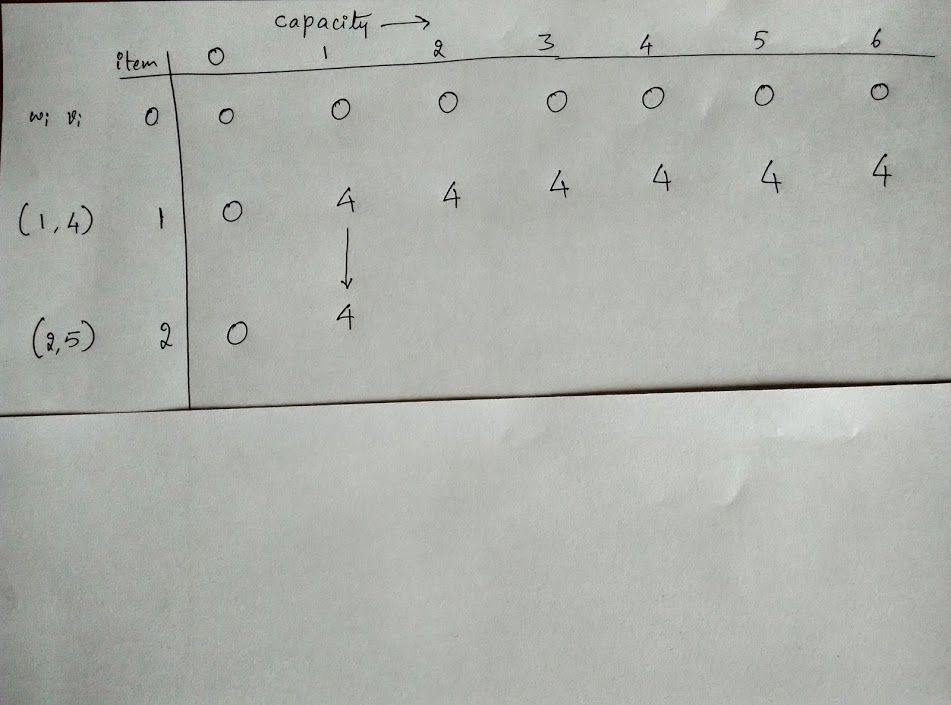 capacity →
item 0 1 2 3 4 5 6
wi vi 0 0 0 0 0 0 0 0
(1,4) 1 0 4 4 4 4 4 4
(2,5) 2 0 4